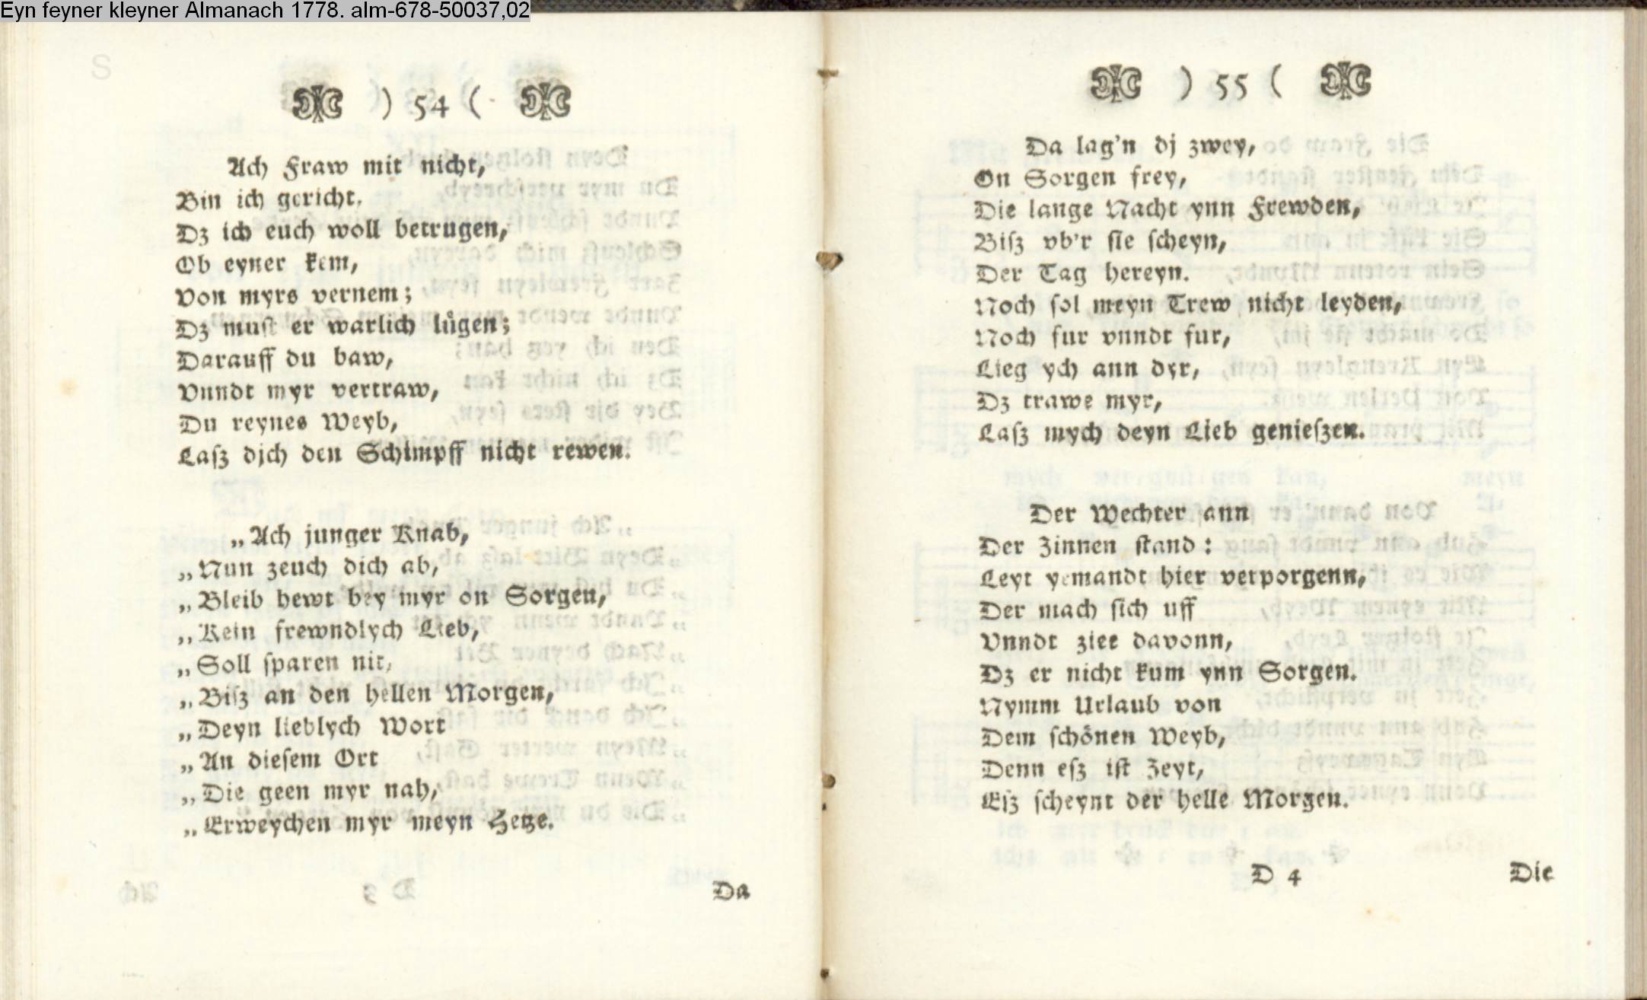 Eyn feyner kleyner Almanach 1778. alm-678-50037,02
) 54 (
Ach Fraw mit nicht,
Bin ich gericht,
Dz ich euch woll betrugen,
Ob eyner kem,
Von myrs vernem;
Dz must er warlich lügen;
Darauff du baw,
Vnndt myr vertraw,
Du reynes Weyb,
Laſz djch den Schimpff nicht rewen.
„Ach junger Knab,
„Nun zeuch dich ab,
„Bleib hewt bey myr on Sorgen,
„Kein frewndlych Lieb,
„Soll ſparen nit,
„Biſz an den hellen Morgen,
„Deyn lieblych Wort
„An dieſem Ort
„Die geen myr nah,
„Erweychen myr meyn Hetze.
Da
) 55 (
Da lag'n dj zwey,
On Sorgen frey,
Die lange Nacht ynn Frewden,
Biſz vb'r ſie ſcheyn,
Der Tag hereyn.
Noch ſol meyn Trew nicht leyden,
Noch fur vnndt fur,
Lieg ych ann dyr,
Dz trawe myr,
Laſz mych deyn Lieb genieſzen.
Der Wechter ann
Der Zinnen ſtand:
Leyt yemandt hier verporgenn,
Der mach ſich uff
Vnndt ziee davonn,
Dz er nicht kum ynn Sorgen.
Nymm Urlaub von
Dem ſchönen Weyb,
Denn eſz iſt Zeyt,
Eſz ſcheynt der helle Morgen.
D 4
Die